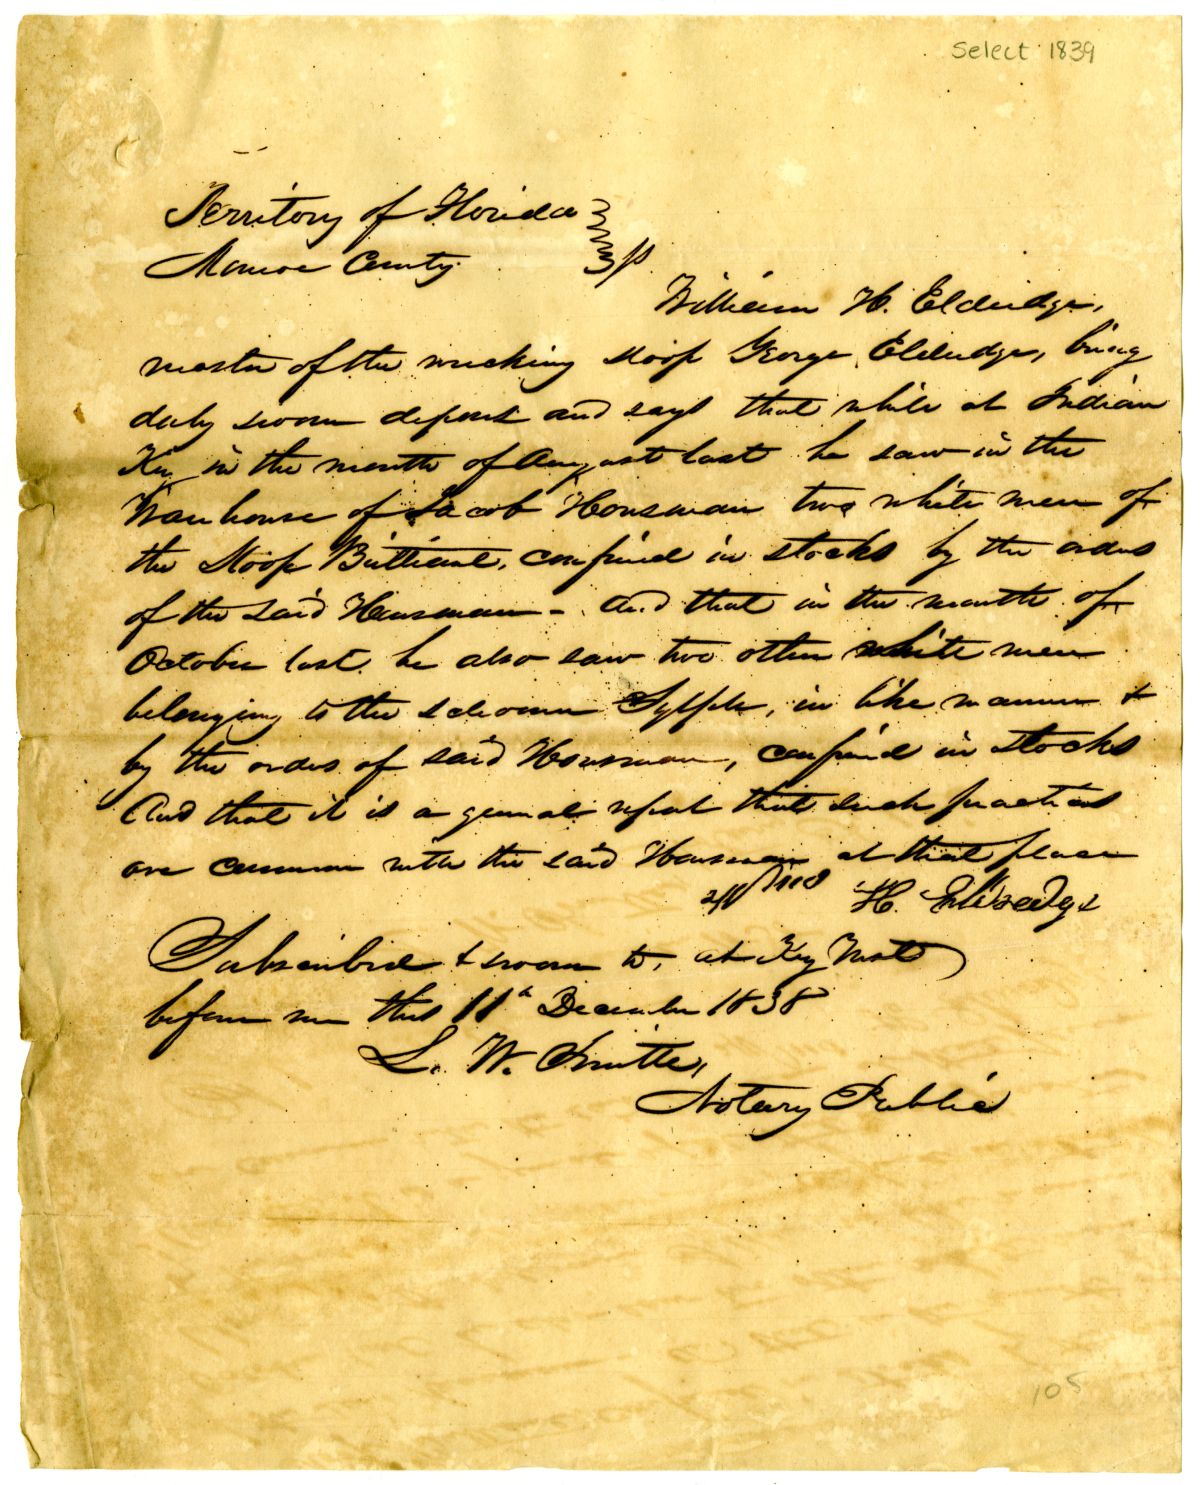 Select 1839
Territory of Florida
Monroe County ss
William H. Eldridge,
master of the wrecking sloop George Eldridge, being
duly sworn deposes and says that while at Indian
Key in the month of August last he saw in the
Warehouse of Jacob Housman two white men of
the Sloop Brilliant, confined in stocks by the orders
of the said Housman - And that in the month of
October last he also saw two other white men
belonging to the schooner Sylph, in like manner &
by the orders of said Housman, confined in stocks
And that it is a general report that such practices
are common with the said Housman at that place
H. Eldredge
Subscribed & sworn to, at Key West
before me this 11th December 1838
L. W. Smith,
Notary Public
105